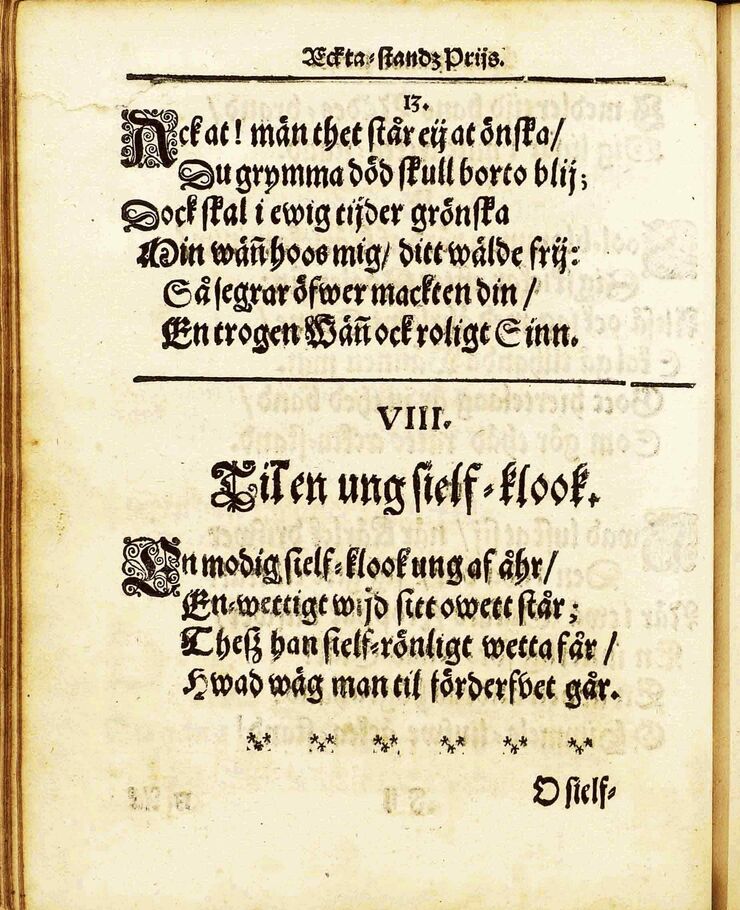 Eckta-standz Prijs.
13.
Ack at! män thet står eij at önska/
Du grymma död skull borto blij;
Dock skal i ewig tijder grönska
Min wän̄ hoos mig/ ditt wälde frij:
Så segrar öfwer mackten din/
En trogen Wän̄ ock roligt Sinn.
VIII.
Til en ung sielf-klook.
En modig sielf-klook ung af åhr/
En-wettigt wijd sitt owett står;
Thesz han sielf-rönligt wetta får/
Hwad wäg man til förderfvet går.
O sielf-